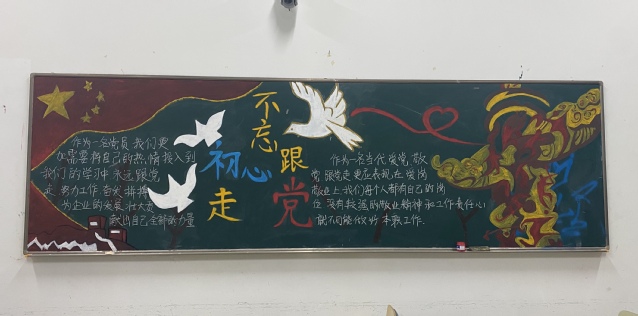 不忘
初心
跟
党
走
作为一名党员 我们更
需要将自己的热情投入到
我们的学习中 永远跟党
走 努力工作 奋发
为企业的发展
献出自己全部的力量
作为一名当代党 敬
党 跟党走更应表现在 爱岗
敬业上 我们每个人都有自己的岗
位 没有敬业精神和工作责任心
就不可能做好本职工作.